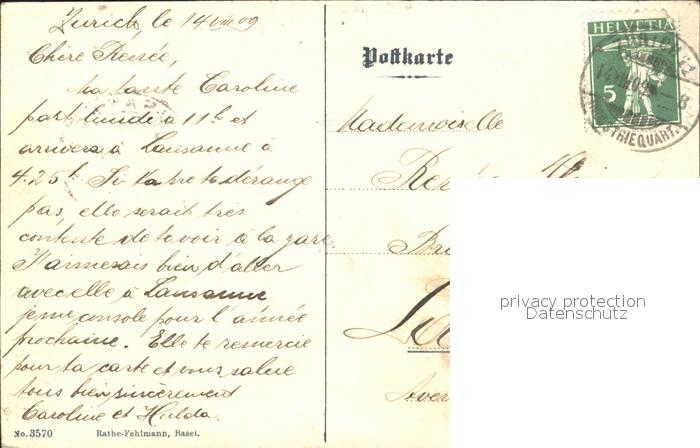 Zurich, le 14 VIII 09
Chère Renée,
Ma tante Caroline
part lundi à 11h et
arrivera à Lausanne à
4.25h. Si ta ne te dérange
pas, elle serait très
contente de te voir à la gare.
J'aimerais bien d'aller
avec elle à Lausanne
je me console pour l'année
prochaine. Elle te remercie
pour ta carte et vous salue
tous bien sincèrement
Caroline et Hulda.
No. 3570 Rathe-Fehlmann, Basel.
Postkarte
HELVETIA
5
Mademoiselle
Renée
privacy protection
Datenschutz